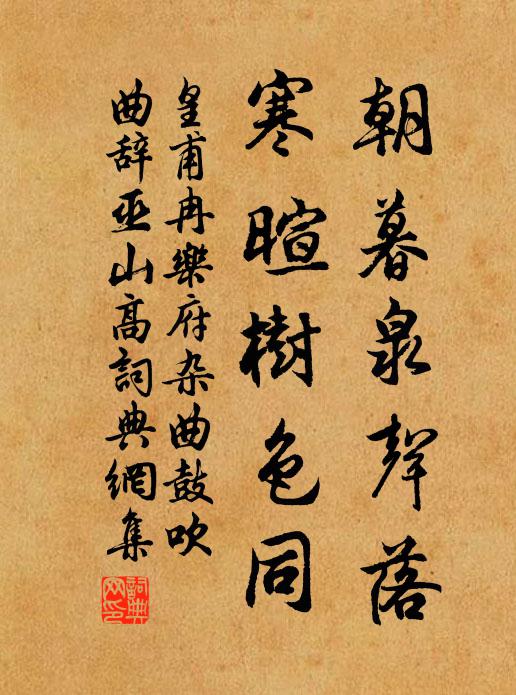 朝暮泉聲落
寒暄樹色同
皇甫冉樂府杂曲鼓吹
曲辞巫山高詞典網集
詞典
网印